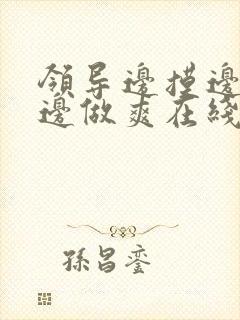 領导邊摸邊
邊做爽在綫
孫昌銮